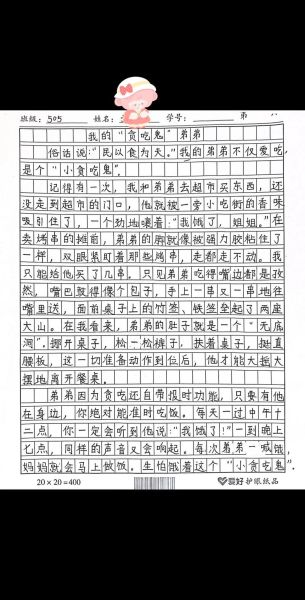 班级：505 姓名： 学号： 第
我的“贪吃鬼”弟弟
俗话说：“民以食为天。”我的弟弟不仅爱吃，
是个“小贪吃鬼”。
记得有一次，我和弟弟去超市买东西，还
没走到超市的门口，他就被一旁小吃街的香味
吸引住了，一个劲地嚷着：“我饿了，姐姐。”在
卖烤串的摊前，弟弟的脚就像被强力胶粘住了
一样，双眼紧盯着那些烤串，走都走不动。我
只能给他买了几串。只见弟弟吃得嘴边都是孜
然，嘴巴就得像个包子，手上一串又一串地往
嘴里送，面前桌子上的竹签、铁签垒起了两座
大山。在我看来，弟弟的肚子就是一个“无底
洞”。挪开桌子，松一松裤子，扶着桌子，挺直
腰板，这一切准备动作到位后，他才能大摇大
摆地离开餐桌。
弟弟因为贪吃还自带报时功能，只要有他
在身边，你绝对能准时吃饭。每天一过中午十
二点，你一定会听到他说：“我饿了！”一到晚上
七点，同样的声音又会响起。每次弟弟一喊饿，
妈妈就会马上做饭。生怕饿着这个“小贪吃鬼”。
20×20=400 爱好 护眼纸品